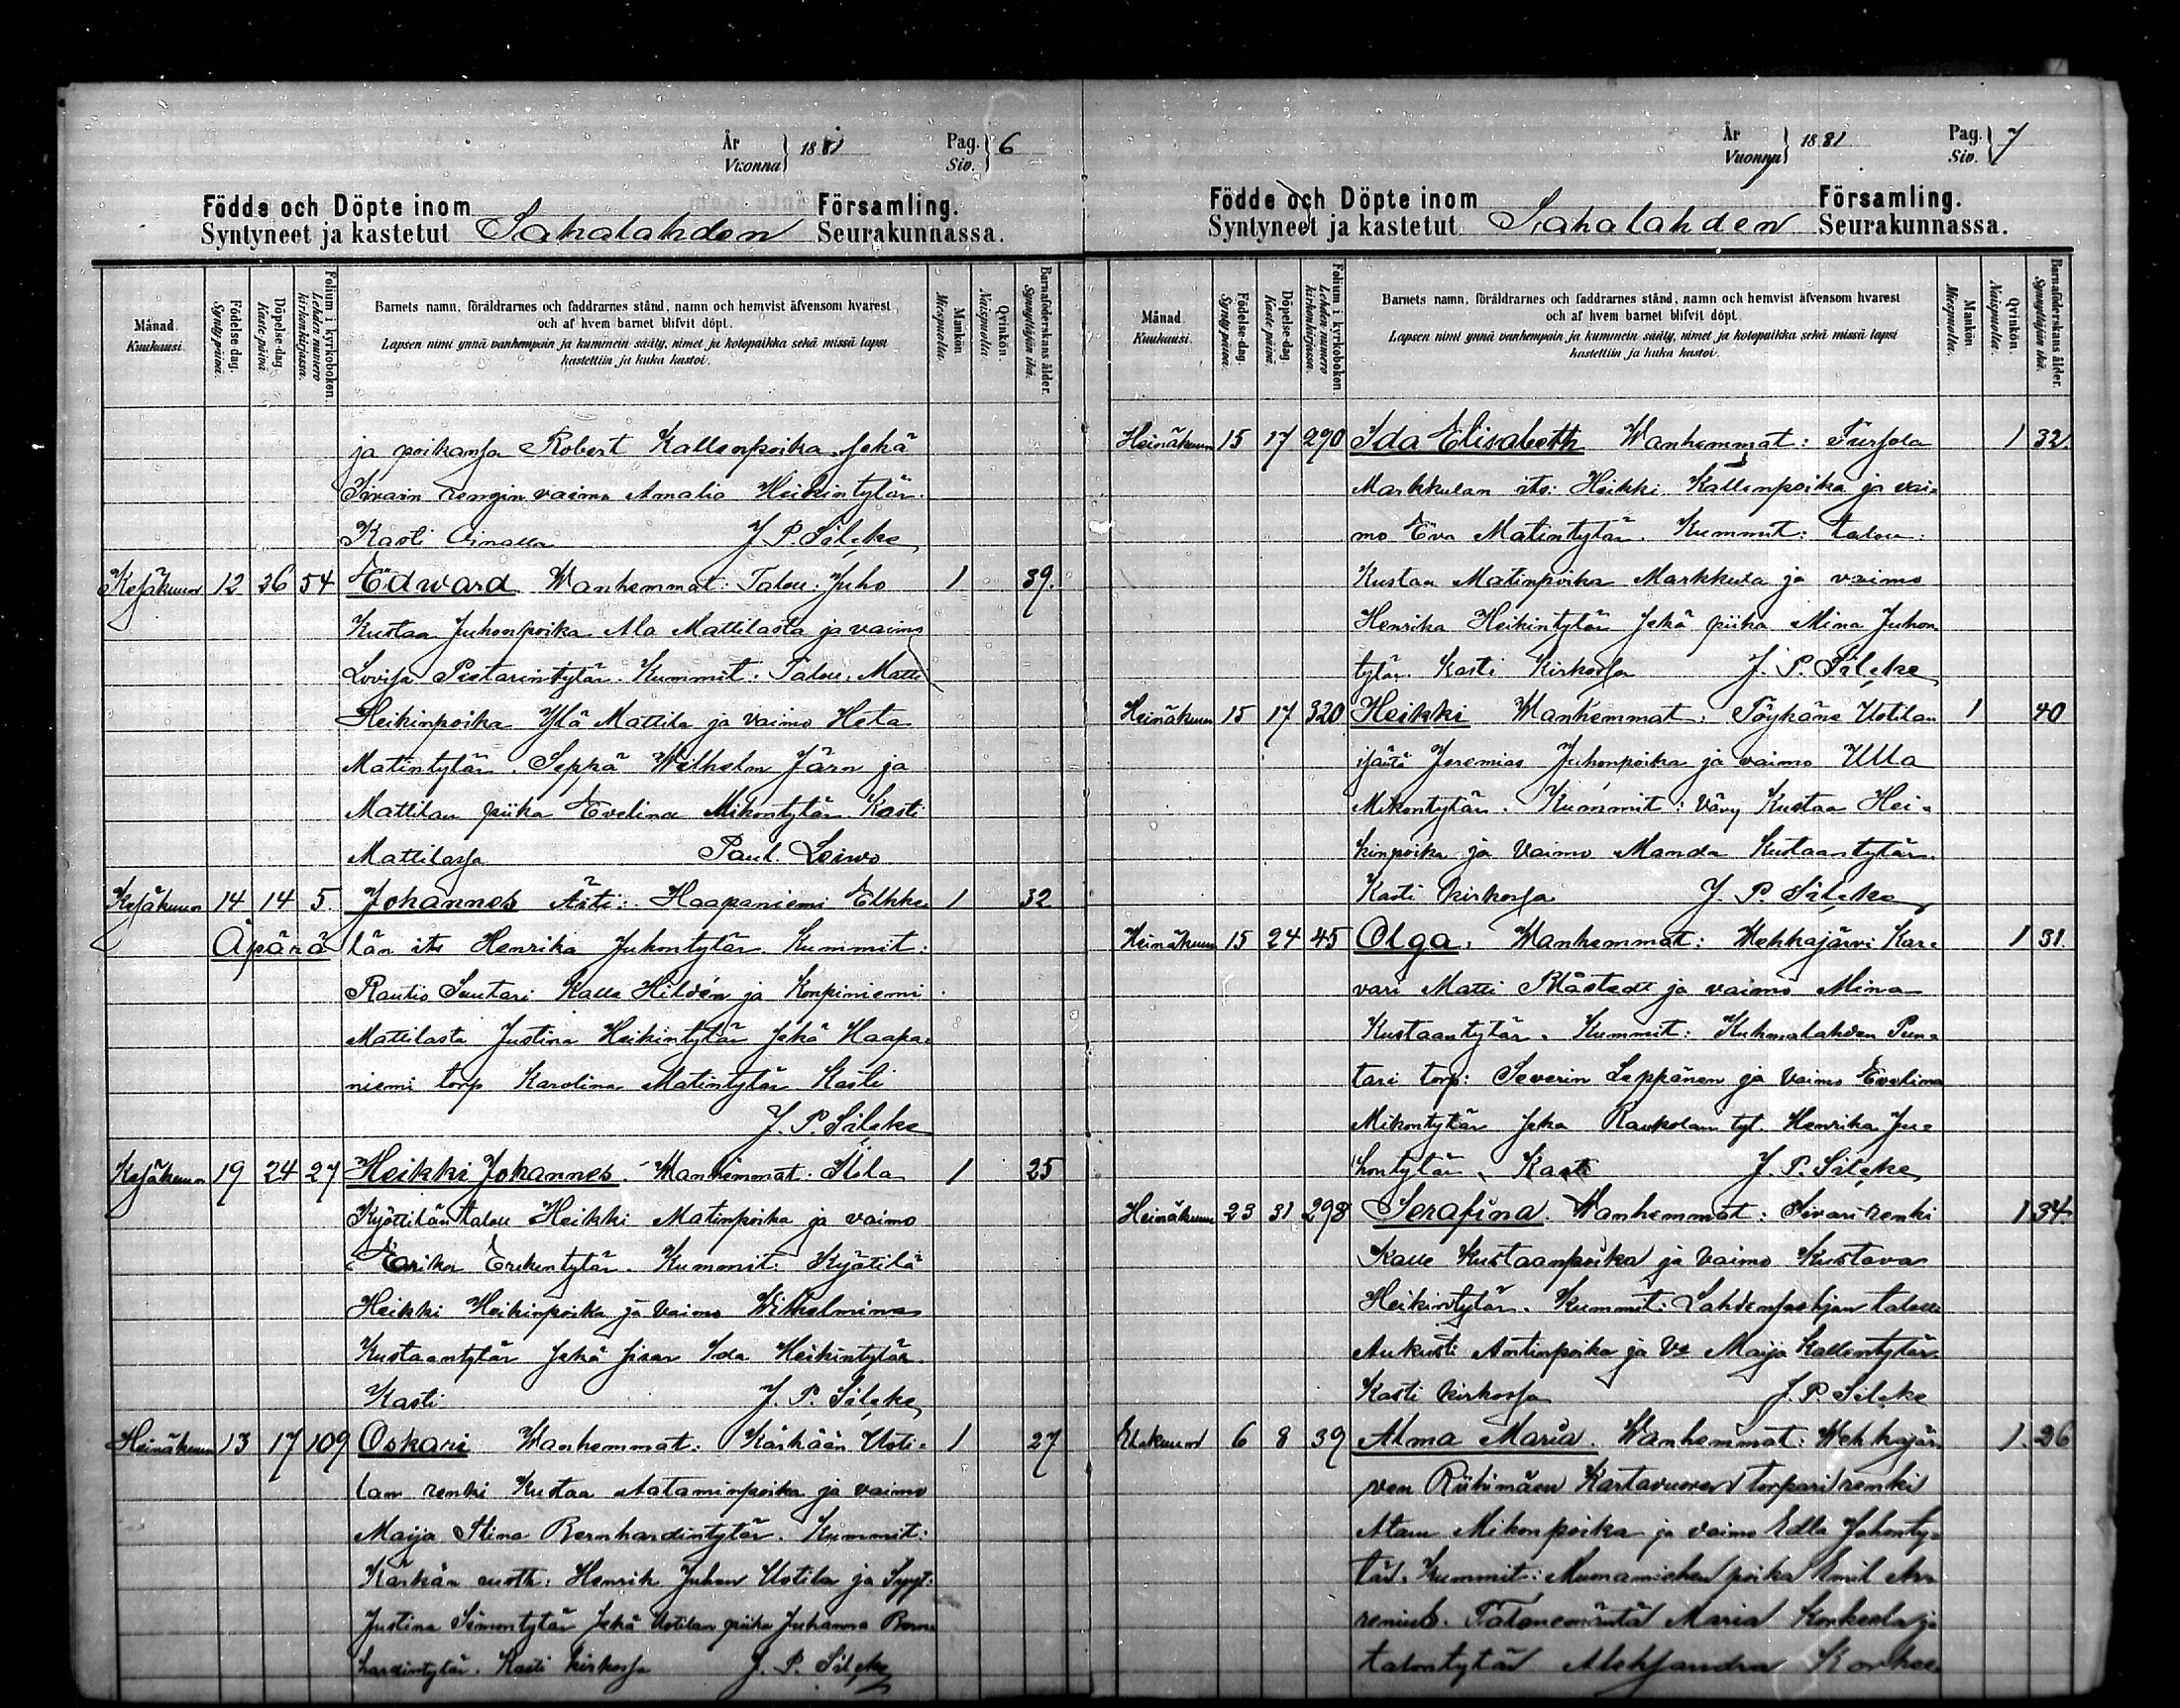 År
Vuonna } 1881 Pag.
Siv. } 6
Födde och Döpte inom Församling.
Syntyneet ja kastetut Sahalahden Seurakunnassa.
Månad. Kuukausi. Födelse-dag. Synty päivä. Döpelse-dag. Kaste päivä. Folium i kyrkoboken. Lehden numero kirkonkirjassa.
Barnets namn, föräldrarnes och faddrarnes stånd, namn och hemvist äfvensom hvarest
och af hvem barnet blifvit döpt.
Lapsen nimi ynnä vanhempain ja kummein sääty, nimet ja kotopaikka sekä missä lapsi
kastettiin ja kuka kastoi.
Mankön. Miespuolia. Qvinkön. Naispuolia. Barnaföderskans ålder. Synnyttäjän ikä.
ja poikansa Robert Kallenpoika sekä
rengin vaimo Amalia Heikintytär.
Kasti J. P. Sileke
Kesäkuun 12 26 54 Edward Wanhemmat: Talou. Juho 1 39.
Kustaa Juhonpoika Ala Mattilasta ja vaimo
Lovisa Pietarintytär. Kummit: Talou. Matti
Heikinpoika Ylä Mattila ja vaimo Heta
Matintytär. Seppä Wilhelm Järn ja
Mattilan piika Evelina Mikontytär. Kasti
Mattilassa Paul. Leiwo
Kesäkuun 14 14 5. Johannes Äiti: Haapaniemi 1 32
Äpärä län its Henrika Juhontytär. Kummit:
Rautio Suutari Kalle Hildén ja Konpiniemi
Mattilasta Justina Heikintytär sekä Haapa-
niemi torp Karolina Matintytär Kasti
J. P. Sileke
Kesäkuun 19 24 27 Heikki Johannes. Wanhemmat: 1 25
Kyöttilän talou Heikki Matinpoika ja vaimo
Erikintytär. Kummit: Kyötilä
Heikki Heikinpoika ja vaimo Wilhelmina
Kustaantytär sekä sisar Ida Heikintytär.
Kasti J. P. Sileke
Heinäkuun 13 17 109 Oskari Wanhemmat: Kärkään Uoti- 1 27
lan renki Kustaa Aataminpoika ja vaimo
Maija Stina Bernhardintytär. Kummit:
Kärkän Henrik Juhan Uotila ja
Justina Simontytär sekä Uotilan piika Juhanna Bern-
hardintytär. Kasti kirkossa J. P. Sileke
År
Vuonna } 1881 Pag.
Siv. } 7
Födde och Döpte inom Församling.
Syntyneet ja kastetut Sahalahden Seurakunnassa.
Månad. Kuukausi. Födelse-dag. Synty päivä. Döpelse-dag. Kaste päivä. Folium i kyrkoboken. Lehden numero kirkonkirjassa.
Barnets namn, föräldrarnes och faddrarnes stånd, namn och hemvist äfvensom hvarest
och af hvem barnet blifvit döpt.
Lapsen nimi ynnä vanhempain ja kummein sääty, nimet ja kotopaikka sekä missä lapsi
kastettiin ja kuka kastoi.
Mankön. Miespuolia. Qvinkön. Naispuolia. Barnaföderskans ålder. Synnyttäjän ikä.
Heinäkuun 15 17 290 Ida Elisabeth Wanhemmat: Tursola 1 32.
Markkulan its: Heikki Kallenpoika ja vai-
mo Eva Matintytär. Kummit: talou:
Kustaa Matinpoika Markkula ja vaimo
Henrika Heikintytär sekä piika Mina Juhon
tytär. Kasti Kirkossa J. P. Sileke
Heinäkuun 15 17 320 Heikki Wanhemmat: Töykäne Uotilan 1 40
isäntä Jeremias Juhonpoika ja vaimo Ulla
Mikontytär. Kummit: Vävy Kustaa Hei-
kinpoika ja vaimo Manda Kustaantytär.
Kasti kirkossa J. P. Sileke
Heinäkuun 15 24 45 Olga. Wanhemmat: Wehkajärvi Kar- 1 31.
vari Matti Blåstedt ja vaimo Mina
Kustaantytär. Kummit: Kuhmalahden Pun-
tari torp: Severin Leppänen ja vaimo Evelina
Mikontytär sekä Raukolan tyt. Henrika Ju-
hontytär. Kasti J. P. Sileke
Heinäkuun 23 31 298 Serafina. Wanhemmat: Sivari renki 1 34.
Kalle Kustaanpoika ja vaimo Kustava
Heikintytär. Kummit: Lahdenpohjan
Aukusti Antinpoika ja Vo Maija Kallentytär.
Kasti kirkossa J. P. Sileke
Elokuun 6 8 39 Alma Maria. Wanhemmat: Wehkajär- 1. 26
ven Riihimäen Kartavuoren torpari renki
Atam Mikonpoika ja vaimo Edla Johanty-
tär. Kummit: poika Emil Ar-
renius. Talonemäntä Maria Konkeala ja
talontytär Aleksandra Korkee-